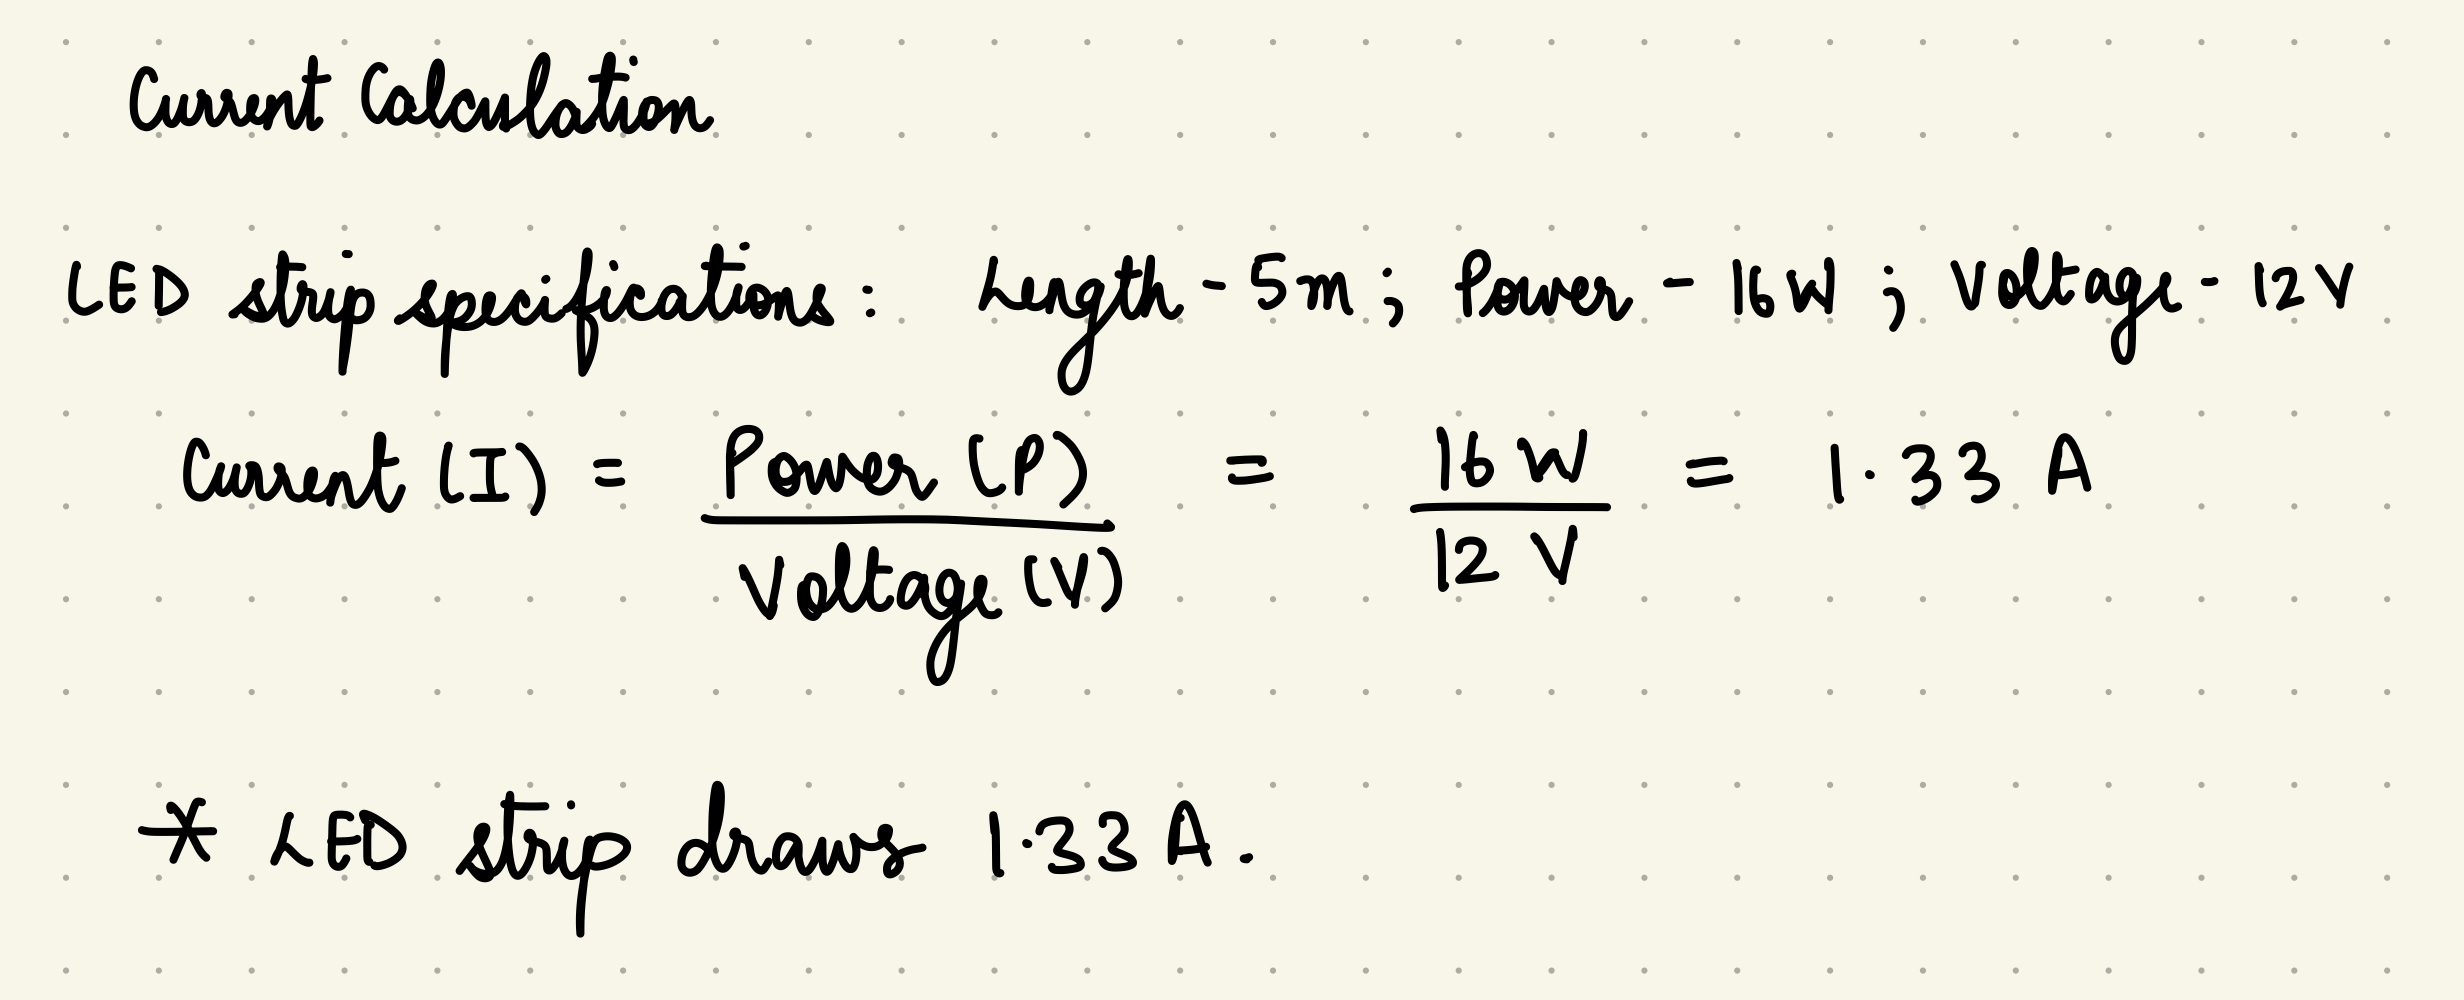 Current Calculation
LED strip specifications: Length - 5m; Power - 16W; Voltage - 12V
Current (I) = Power (P) / Voltage (V) = 16 W / 12 V = 1.33 A
* LED strip draws 1.33 A.